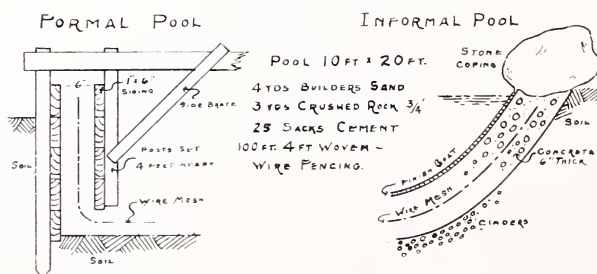 FORMAL POOL
6"
1" x 6"
SIDING
SIDE BRACE
POSTS SET
4 FEET APART
SOIL
WIRE MESH
SOIL
POOL 10 FT x 20 FT.
4 YDS BUILDERS SAND
3 YDS CRUSHED ROCK 3/4"
25 SACKS CEMENT
100 FT. 4 FT WOVEN -
WIRE FENCING.
INFORMAL POOL
STONE
COPING
SOIL
CONCRETE
6" THICK
FINISH COAT
WIRE MESH
CINDERS